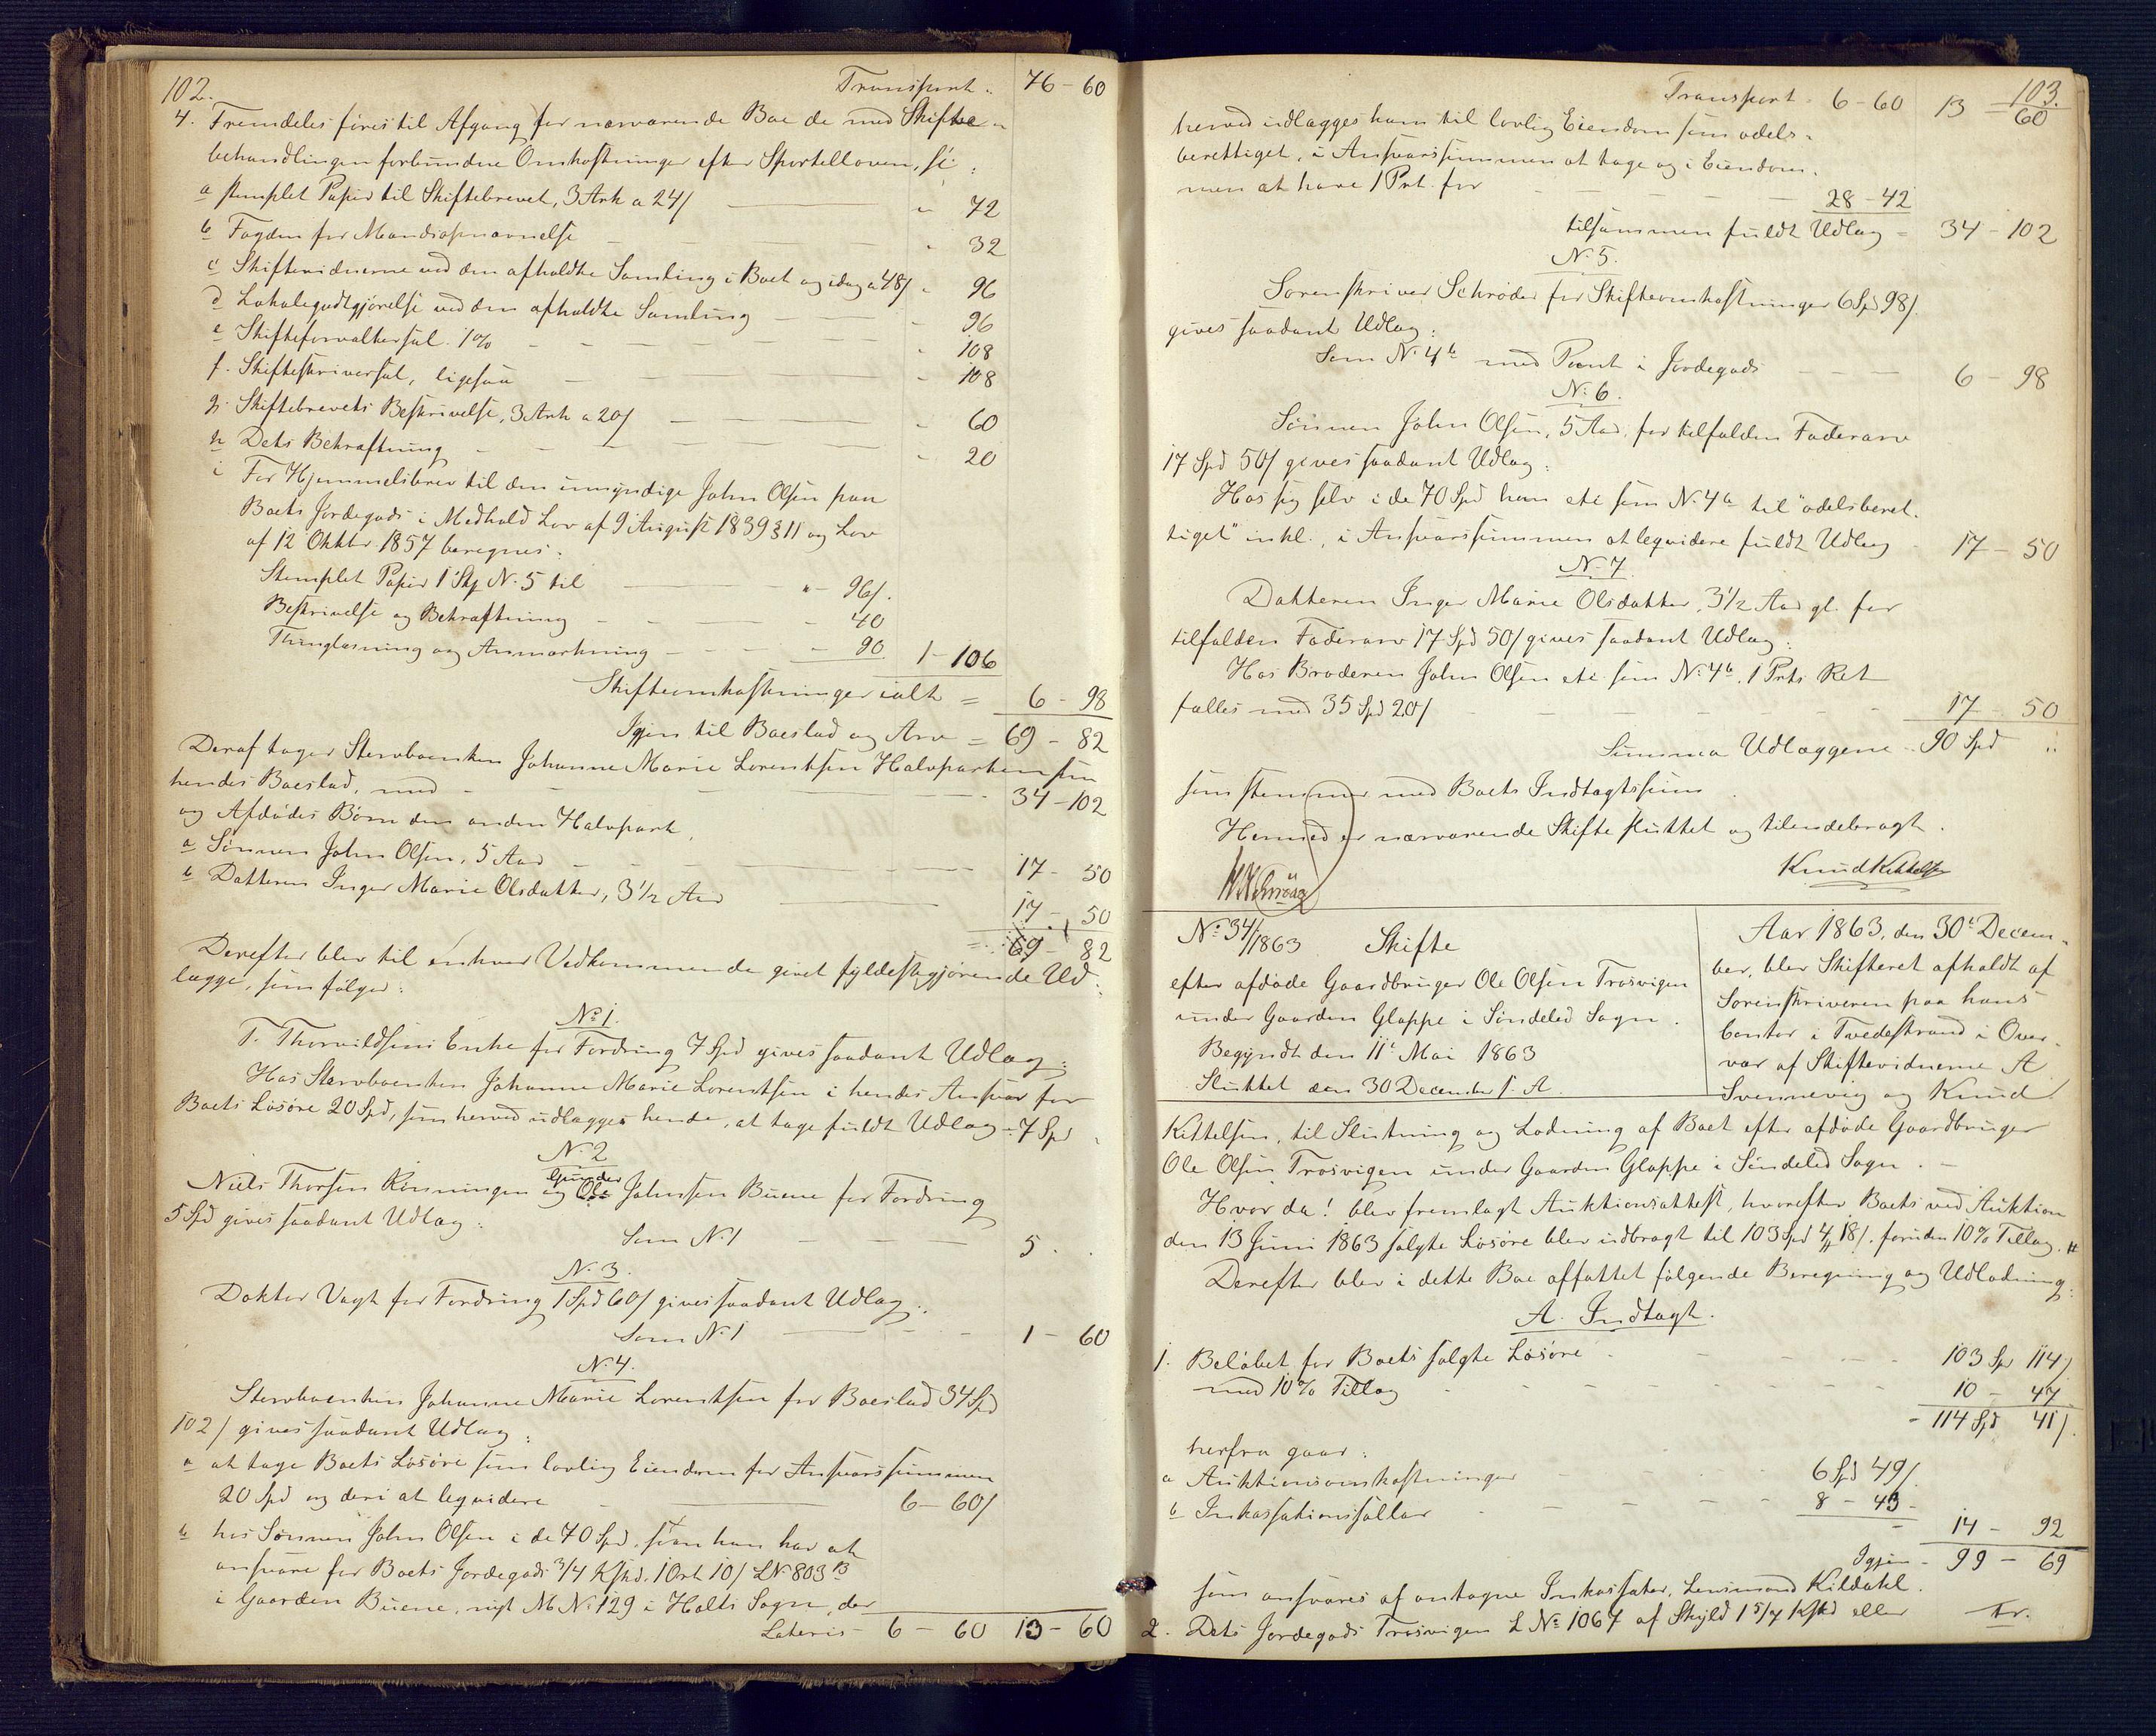 102.
Transport " 76 - 60
4. Fremdeles føres til Afgang for nærværende Boe de med Skifte-
behandlingen forbundne Omkostninger efter Sportelloven, s:
a stemplet Papir til Skiftebrevet, 3 Ark a 24/ " 72
b Fogden for Mandsopnævnelse " 32
c Skiftevidnerne ved den afholdte Samling i Boet og idag a 48/ " 96
d Lokalegodtgjørelse ved den afholdte Samling - 96
e Skifteforvaltersal. 1% " 108
f. Skifteskriversal, ligesaa " 108
g. Skiftebrevets Beskrivelse, 3 Ark a 20/ " 60
h Dets Bekræftning " 20
i For Hjemmelsbrev til den umyndige John Olsen paa
Boets Jordegods i Medhold Lov af 9 August 1839 § 11 og Lov
af 12 Oktbr. 1857 beregnes:
Stemplet Papir 1 Stk N. 5 til " - 96/.
Beskrivelse og Bekræftning - 40
Thinglæsning og Anmærkning - 90 1 - 106
Skifteomkostninger ialt = 6 - 98
Igjen til Boeslod og Arv = 69 - 82
Deraf tager Stervboenken Johanne Marie Lorentsen Halvparten som
hendes Boeslod, med 34 - 102
og Afdødes Børn den anden Halvpart,
a Sønnen John Olsen, 5 Aar 17 - 50
b Datteren Inger Marie Olsdatter, 3 1/2 Aar 17 - 50
69 - 82
Derefter blev til enhver Vedkommende givet fyldestgjørende Ud-
lægge, som følger:
No 1.
T. Thorvildsens Enke for Fordring 7 Spd gives saadant Udlæg:
Hos Stervboenken Johanne Marie Lorentsen i hendes Ansvar for
Boets Løsøre 20 Spd, som herved udlægges hende, at tage fuldt Udlæg - 7 Spd "
N. 2
Niels Thorsen Rønningen og Gunder Ole Johnsen Buene for Fordring
5 Spd gives saadant Udlæg:
Som N. 1 5 .
N. 3.
Doktor Vogt for Fordring 1 Spd 60/ gives saadant Udlæg:
Som N. 1 1 - 60
N. 4.
Stervboenken Johanne Marie Lorentsen for Boeslod 34 Spd
102/ gives saadant Udlæg:
a at tage Boets Løsøre som lovlig Eiendom for Ansvarssummen
20 Spd og deri at leqvidere 6 - 60/
b hos Sønnen John Olsen i de 70 Spd. som han har at
ansvare for Boets Jordegods 3/4 Kskd. 1 Ort 10/ LN 803 B
i Gaarden Buene, nyt M No 129 i Holts Sogn, der
Lateris - 6 - 60 13 - 60
103.
Transport - 6 - 60 13 - 60
herved udlægges ham til lovlig Eiendom som odels-
berettiget, i Ansvarssummen at tage og i Eiendom-
men at have 1 Prt. for 28 - 42
tilsammen fuldt Udlæg - 34 - 102
N. 5.
Sorenskriver Schrøder for Skifteomkostninger 6 Spd 98/.
gives saadant Udlæg:
Som N. 4 b med Pant i Jordegods 6 - 98
N. 6.
Sønnen John Olsen, 5 Aar, for tilfalden Faderarv
17 Spd 50/ gives saadant Udlæg:
Hos sig selv i de 70 Spd han etc som N. 4 b til "odelsberet-
tiget" inkl., i Ansvarssummen at leqvidere fuldt Udlæg 17 - 50
N. 7.
Datteren Inger Marie Olsdatter, 3 1/2 Aar gl. for
tilfalden Faderarv 17 Spd 50/ gives saadant Udlæg:
Hos Broderen John Olsen etc som N. 4 b. 1 Prts Ret
fælles med 35 Spd 20/ 17 50
Summa Udlæggene - 90 Spd "
som stemmer med Boets Indtægtssum
Hermed er nærværende Skifte sluttet og tilendebragt.
Knud Kittelsen
No 34/1863 Skifte
efter afdøde Gaardbruger Ole Olsen Trosvigen
under Gaarden Gloppe i Søndeled Sogn.
Begyndt den 11te Mai 1863
Sluttet den 30 December s. A.
Aar 1863, den 30te Decem-
ber, blev Skifteret afholdt af
Sorenskriveren paa hans
Contor i Tvedestrand i Over-
vær af Skiftevidnerne A
Svennevig og Knud
Kittelsen, til Slutning og Lodning af Boet efter afdøde Gaardbruger
Ole Olsen Trosvigen under Gaarden Gloppe i Søndeled Sogn. -
Hvor da! blev fremlagt Auktionsattest, hvorefter Boets ved Auktion
den 13 Juni 1863 solgte Løsøre blev udbragt til 103 Spd 4 # 18/. foruden 10% Tillæg. #
Derefter blev i dette Boe affattet følgende Beregning og Udlodning:
A. Indtægt.
1. Beløbet for Boets solgte Løsøre 103 Sp 114/
med 10% Tillæg 10 - 47
- 114 Spd 41/.
herfra gaar:
a Auktionsomkostninger 6 Spd 49/.
b Inkassationssallær 8 - 43 -
14 - 92
Igjen - 99 - 69
som ansvares af antagne Inkassator, Lensmand Kildahl.
2. Dets Jordegods Trosvigen L No 1067 af Skyld 1 5/7 Kskd eller Tr.